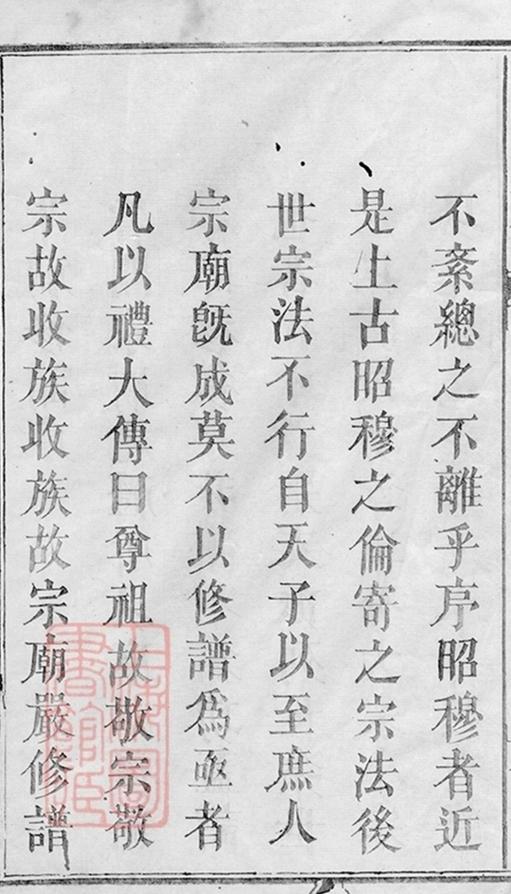 不紊總之不離乎序昭穆者近
是上古昭穆之倫寄之宗法後
世宗法不行自天子以至庶人
宗廟旣成莫不以修譜爲亟者
凡以禮大傳曰尊祖故敬宗敬
宗故收族收族故宗廟嚴修譜